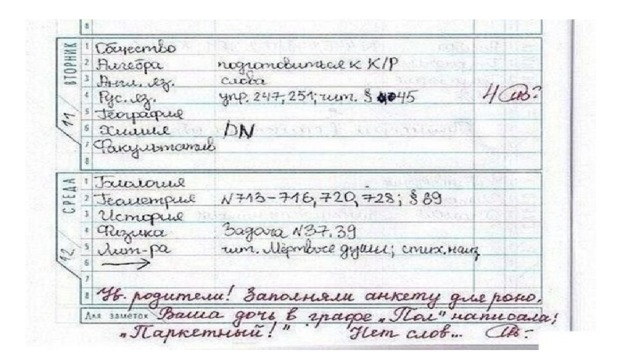 8
ВТОРНИК
11
1 Общество
2 Алгебра подготовиться к К/Р
3 Англ. яз. слова
4 Рус. яз. упр. 247, 251; чит. § 45 4
5 География
6 Химия
7 Факультатив
8
СРЕДА
12
1 Биология
2 Геометрия N713-716, 720, 728; § 89
3 История
4 Физика Задача N37, 39
5 Лит-ра чит. Мёртвые души; стих. наиз
6
7
8 Ув. родители! Заполняли анкету для роно.
Для заметок Ваша дочь в графе „Пол" написала:
„Паркетный!" Нет слов...